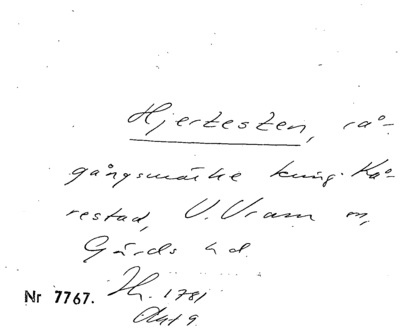 Hjertesten, rå-
gångsmärke kring Kåa-
restad, V. Vram sn,
Gärds hd.
Nr 7767. Th. 1781
Akt 9.